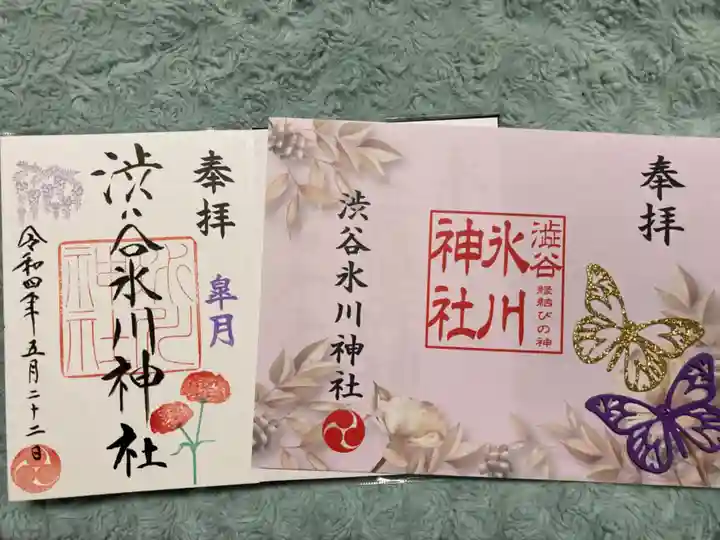 奉拝
皐月
渋谷氷川神社
令和四年五月二十二日
奉拝
澁谷
氷川
神社
縁結びの神
渋谷氷川神社